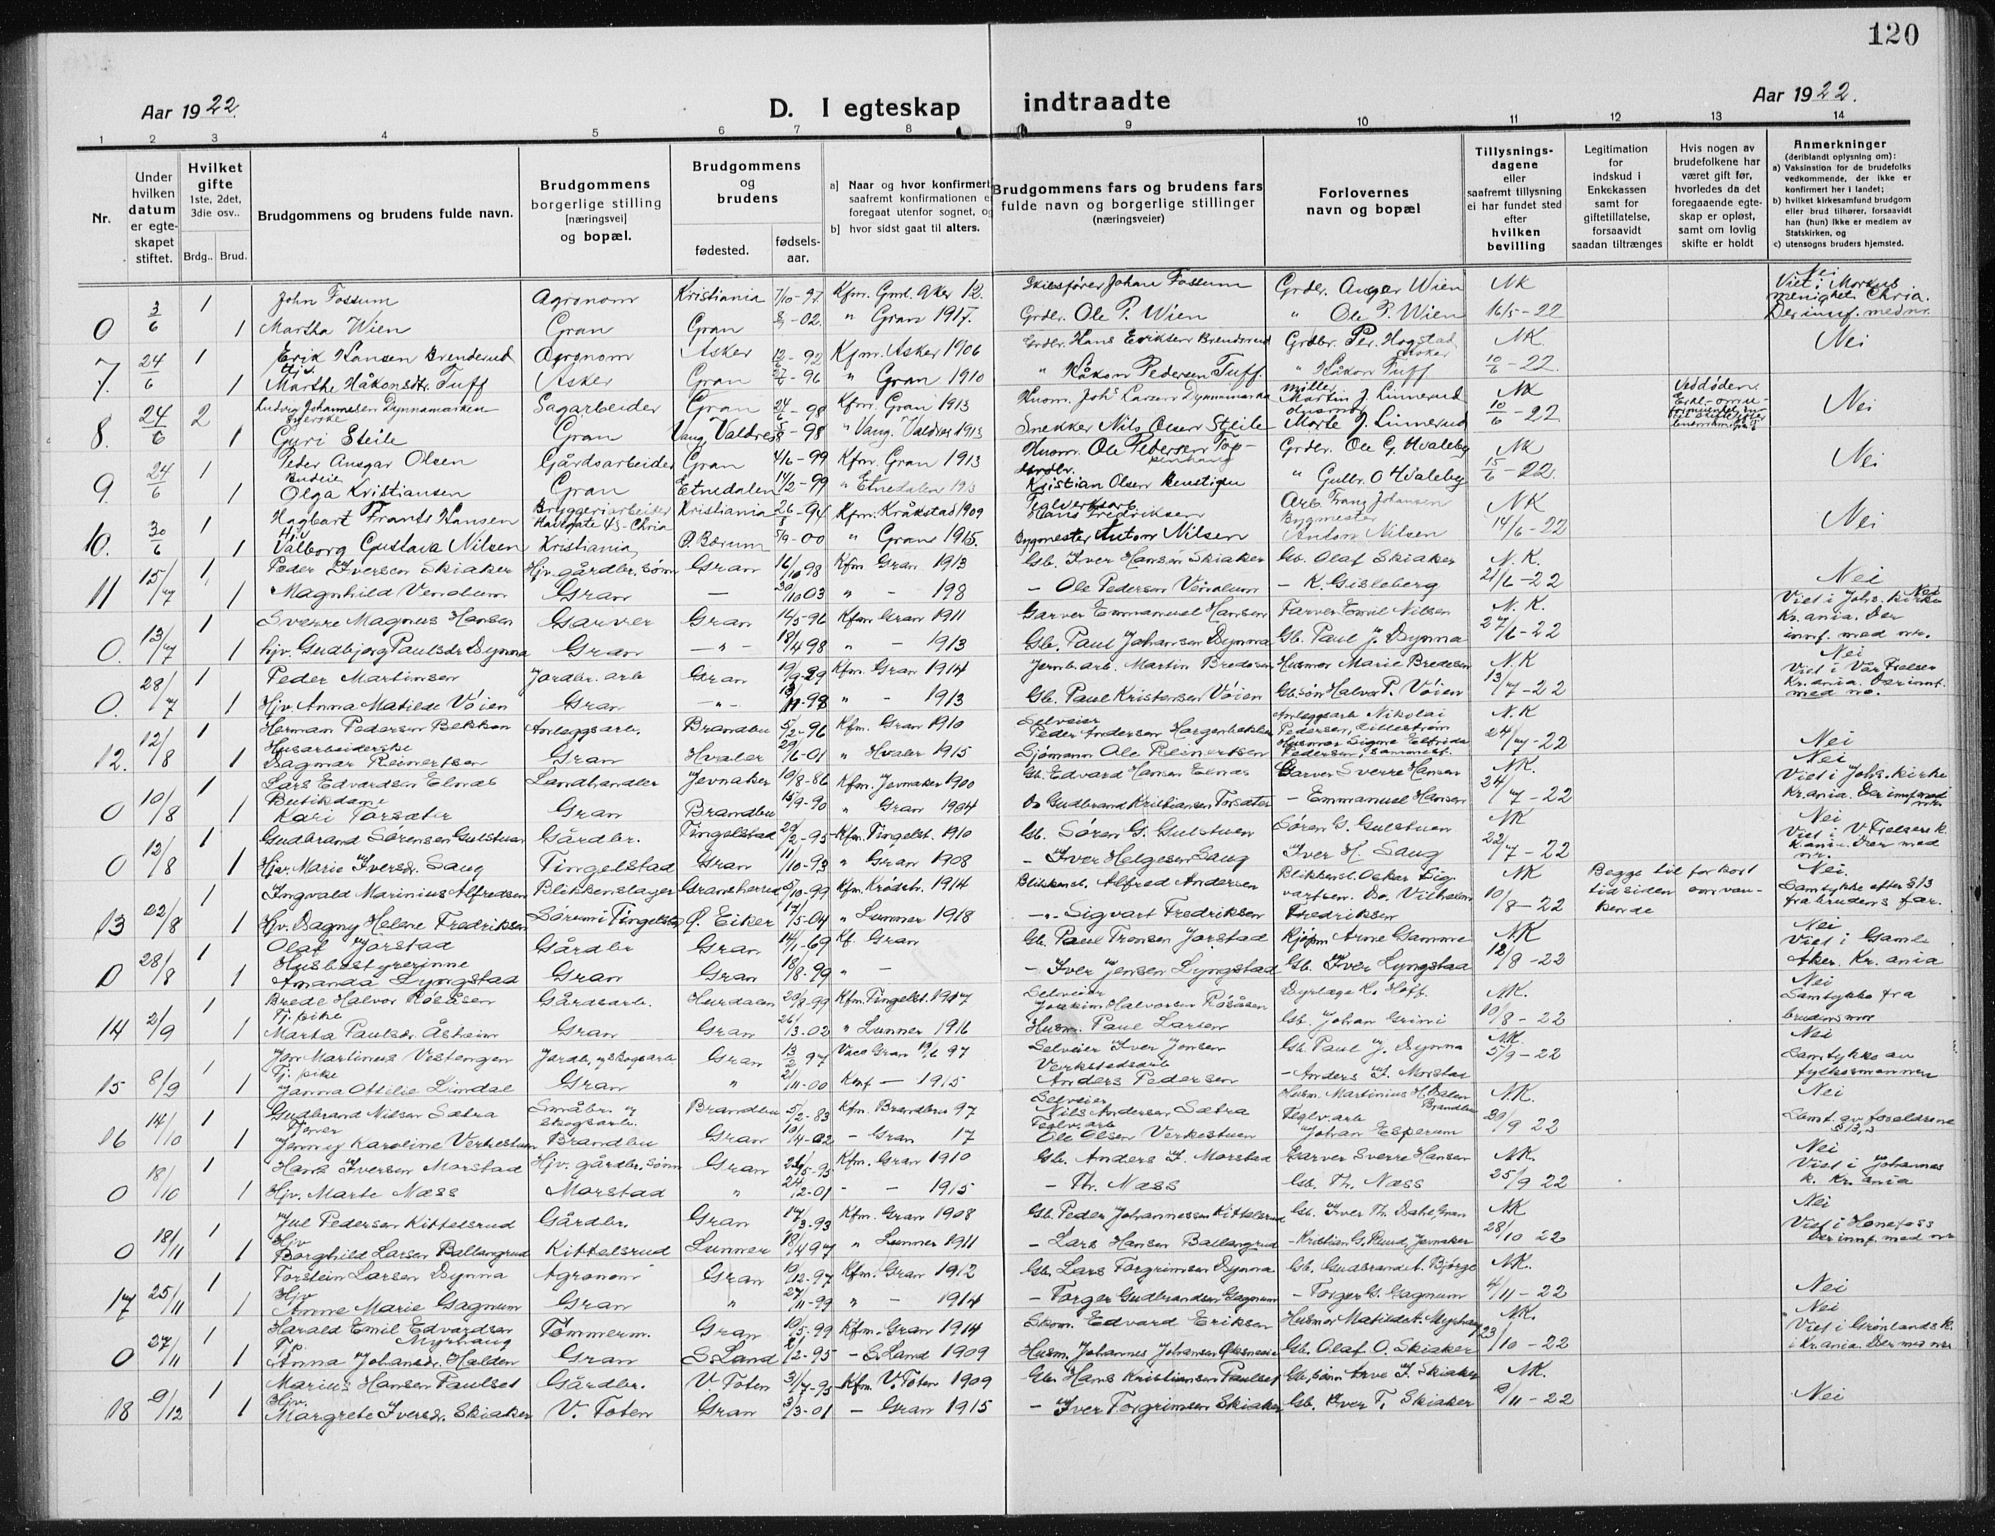 120
Aar 1922.
D. I egteskap indtraadte
Aar 1922.
1 2 3 4 5 6 7 8 9 10 11 12 13 14
Nr.
Under hvilken datum er egteskapet stiftet.
Hvilket gifte 1ste, 2det, 3die osv..
Brdg.. Brud.
Brudgommens og brudens fulde navn.
Brudgommens borgerlige stilling [næringsvei] og bopæl.
Brudgommens og brudens
fødested.
fødsels-aar.
a] Naar og hvor konfirmert, saafremt konfirmationen er foregaat utenfor sognet, og
b] hvor sidst gaat til alters.
Brudgommens fars og brudens fars fulde navn og borgerlige stillinger (næringsveier)
Forlovernes navn og bopæl
Tillysnings-dagene eller saafremt tillysning ei har fundet sted efter hvilken bevilling
Legitimation for indskud i Enkekassen samt for giftetillatelse, forsaavidt saadan tiltrænges
Hvis nogen av brudefolkene har været gift før, hvorledes da det foregaaende egteskap er opløst, samt om lovlig skifte er holdt
Anmerkninger (deriblandt oplysning om):
a) Vaksination for de brudefolks vedkommende, der ikke er konfirmert her i landet;
b) hvilket kirkesamfund brudgom eller brud tilhører, forsaavidt han (hun) ikke er medlem av Statskirken, og
c) utensogns bruders hjemsted.
3/6 1 John Fossum Agronom Kristiania 7/10-97 Kfm. Gml. Aker 12. Johan Fossum Grdbr. Wien NK Nei
0 1 Martha Wien Gran Gran -02 " Gran 1917. Grdbr. Ole P. Wien " Ole P. Wien 16/5-22 Der innf. med nr.
24/6 1 Erik Hansen Brenderud Agronom Asker -92 Kfm. Asker 1906 Grdbr. Hans Eriksen Brenderud Grdbr. Per. Hogstad Asker NK Nei
7. 1 Marthe Håkonsdr. Tuff Asker Gran -96 " Gran 1910 " Håkon Pedersen Tuff " Håkon Tuff 10/6-22
24/6 2 Ludvig Johannesen Dynnamarken Sagarbeider Gran -98 Kfm. Gran 1913 Husm. Johs. Larsen Dynnamarka Møller Martin J. Linnerud NK Veddøden. Nei
8. 1 Guri Steile Gran Vang Valdres -98 " Vang. Valdres 1913 Snekker Nils Olsen Steile Marte J. Linnerud 10/6-22
24/6 1 Peder Ansgar Olsen Gårdsarbeider Gran 4/6-99 Kfm. Gran 1913 Husm. Ole Pedersen Grdbr. Ole G. Hvaleby NK Nei
9. 1 Budeie Olga Kristiansen Gran Etnedalen 14/2-99 " Etnedalen Kristian Olsen " Gulbr. O Hvaleby 15/6-22
30/6 1 Hagbart Frants Hansen Bryggeriarbeider Kristiania 26/8-94 Kfm. Kråkstad 1909 Teglverksarb. Hans Fredriksen Arb. Franz Johansen NK Nei
10. 1 Hjv Valborg Gustava Nilsen Kristiania Ø. Bærum 5/9-00 " Gran 1915. Bygmester Anton Nilsen Bygmester Anton Nilsen 14/6-22
15/7 1 Peder Iversen Skiaker Hjv. gårdbr. sønn Gran 16/10 98 Kfm Gran 1913 Gb. Iver Hansen Skiaker Gb. Olaf Skiaker N. K. Nei
11 1 Magnhild Vendum Gran — 30/10 03 " - 198 — Ole Pedersen Vendum — K. Gisleberg 21/6-22
13/7 1 Sverre Magnus Hansen Garver Gran 14/5-96 Kfm Gran 1911 Garver Emmanuel Hansen Farver Emil Nilsen N. K. Nei Viet i Johs. kirke Kr.ania. Der innf. med nr.
0. 1 hjv. Gudbjørg Paulsdr. Dynna Gran — " — 18/4 98 " — 1913 Gb. Paul Johansen Dynna Gb. Paul J. Dynna 27/6-22
28/7 1 Peder Martinsen Jordbr. arb Gran 19/9-89 Kfm Gran 1914 Jernb.arb. Martin Bredesen Husmor Marie Bredesen N.K Nei
0. 1 Hjv. Anna Matilde Vøien Gran — " — -98 " — 1913 Gb. Paul Kristensen Vøien Gb. søn Halvor P. Vøien 13/7-22 Viet i Vår Frelser Kr.ania. Der innf. med no.
12/8 1 Herman Pedersen Bekken Anleggsarb. Brandbu 5/2-96 Kfm. Gran 1910 Selveier Peder Andersen Anleggsarb. Nikolai Pedersen, Lillestrøm N.K
12. 1 Husarbeiderske Dagmar Reinertsen Gran Hvaler 29/6-01 " Hvaler 1915 Sjømann Ole Reinertsen Husmor Signe Elfrida Pedersen 24/7-22 Nei
10/8 1 Lars Edvardsen Elnas Landhandler Jevnaker 10/8-86 Kfm. Jevnaker 1900 Gb. Edvard Hansen Elnas Garver Sverre Hansen NK. Nei Viet i Johs. kirke Kr.ania. Der innf. med nr.
0 1 Butikdame Kari Torsater Gran Brandbu 15/9-90 " Gran 1904 Do Gudbrand Kristiansen Torsater — Emmanuel Hansen 24/7-22
12/8 1 Gudbrand Sørensen Gulstuen Gårdbr. Tingelstad -95 Kfm. Tingelst. 1910 Gb. Søren G. Gulstuen Søren G. Gulstuen NK Nei
0 1 Hjv. Marie Iversdr. Saug Tingelstad Gran 11/10-93 " Gran 1908 — Iver Helgesen Saug Iver H. Saug 22/7-22 Viet i V. Frelsers k. Kr.ania. Der med nr.
22/8 1 Ingvald Marinius Alfredsen Blikkenslager Gransherred 5/10-99 Kfm. Krødsh. 1914 Blikkensl. Alfred Andersen Blikkensl. Oskar Sigvartsen. NK Begge til for kort tid siden omvankende Nei. Samtykke efter § 13 fra brudens far.
13 1 Hjv. Dagny Helene Fredriksen Sørum i Tingelstad Ø. Eiker 17/5-04 " Lunner 1918 — " — Sigvart Fredriksen Do. Vilhelm Fredriksen 10/8-22
28/8 1 Olaf Jorstad Gårdbr Gran 14/1-69 Kf. Gran Gb. Paul Tronsen Jorstad Kjøpm Arne Gamme NK Nei Viet i Gamle Aker. Kr.ania
0 1 Husbestyrerinne Amanda Lyngstad Gran Gran 18/8-99 " — — Iver Jensen Lyngstad Gb. Iver Lyngstad 12/8-22
2/9 1 Brede Halvor Røsåsen Gårdsarb. Hurdalen 20/8-99 Kfm. Tingelst. 1917 Selveier Joakim Halvorsen Røsåsen Dyrlæge K. Hoff. NK. Nei Samtykke fra brudens mor
14 1 Tj. pike Marta Paulsdr. Åsheim Gran Gran 26/3-02 " Lunner 1916 Husm. Paul Larsen Gb. Johan Grini 10/8-22
8/9 1 Jon Martinus Vestengen Jordbr. og skogsarb. Gran 13/2-97 Vacc Gran 19/6 97 Selveier Iver Jensen Gb. Paul J. Dynna NK. 5/9-22 Nei Samtykke av fylkesmannen
15 1 Tj. pike Janna Otilie Lindal Gran " 21/11-00 Konf — 1915 Verkstedsarb. Anders Pedersen — Anders I. Morstad
14/10 1 Gudbrand Nilsen Sætra Småbr. og skogsarb. Brandbu 5/2-83 Kfm. Brandbu 97 Selveier Nils Andersen Sætra Husm. Martinius H. Dalen Brandbu N.K. Nei
16 1 Jenny Karoline Verkestuen Brandbu Gran 10/4-02 — Gran 17 Teglv.arb Ole Olsen Verkestuen Teglv.arb Johan Esperum 20/9 22 Samt. av foreldrene § 13,
18/10 1 Hans Iversen Morstad Hjv. gårdbr. sønn Gran -95 Kfm. Gran 1910 Gb. Anders I. Morstad Garver Sverre Hansen NK. Nei Viet i Johannes k. Kr.ania
0 1 Hjv. Marte Næss Morstad " 24/2-01 — — 1915 — Th. Næss Gb. Th. Næss 25/9 22
18/11 1 Jul Pedersen Kittelsrud Gårdbr. Gran 17/3-93 Kfm. Gran 1908 Gb. Peder Johannessen Kittelsrud Gb. Iver Th. Dahl, Gran NK Nei Viet i Hønefoss Der innf. med nr
0 1 Hjv Borghild Larsen Ballangrud Kittelsrud Lunner 18/4 97 " Lunner 1911 — Lars Hansen Ballangrud — Kristian G. Ruud, Jevnaker 28/10 22
25/11 1 Torstein Larsen Dynna Agronom Gran 10/12-97 Kfm. Gran 1912 Gb. Lars Torgrimsen Dynna Gb. Gudbrand A. Bjørge NK. Nei
17 1 Hjv Anne Marie Gagnum Gran " 27/11-99 " — 1914 — Torger Gudbrandsen Gagnum — Torger G. Gagnum 4/11-22
27/11 1 Harald Emil Edvardsen Myrhaug Tømmerm. Gran 10/5-99 Kfm. Gran 1914 Skom. Edvard Eriksen Husmor Matilde A. Myrhaug NK. Nei Viet i Grønlands k. i Kr.ania. Der med nr
0 1 Tj. Anna Johansdr. Halden Gran S. Land 2/2-95 — S. Land 1909 Husm. Johannes Johansen Gb. Olaf O. Skiaker 23/10-22
9/12 1 Marius Hansen Paulset Gårdbr. V. Toten 31/7-95 Kfm. V. Toten 1909 Gb. Hans Kristiansen Paulset Gb. sønn Arve I. Skiaker NK. Nei
18 1 Hjv. Margrete Iversdr. Skiaker V. Toten Gran 3/3-01 — Gran 1915 — Iver Torgrimsen Skiaker Gb. Iver T. Skiaker 9/11-22